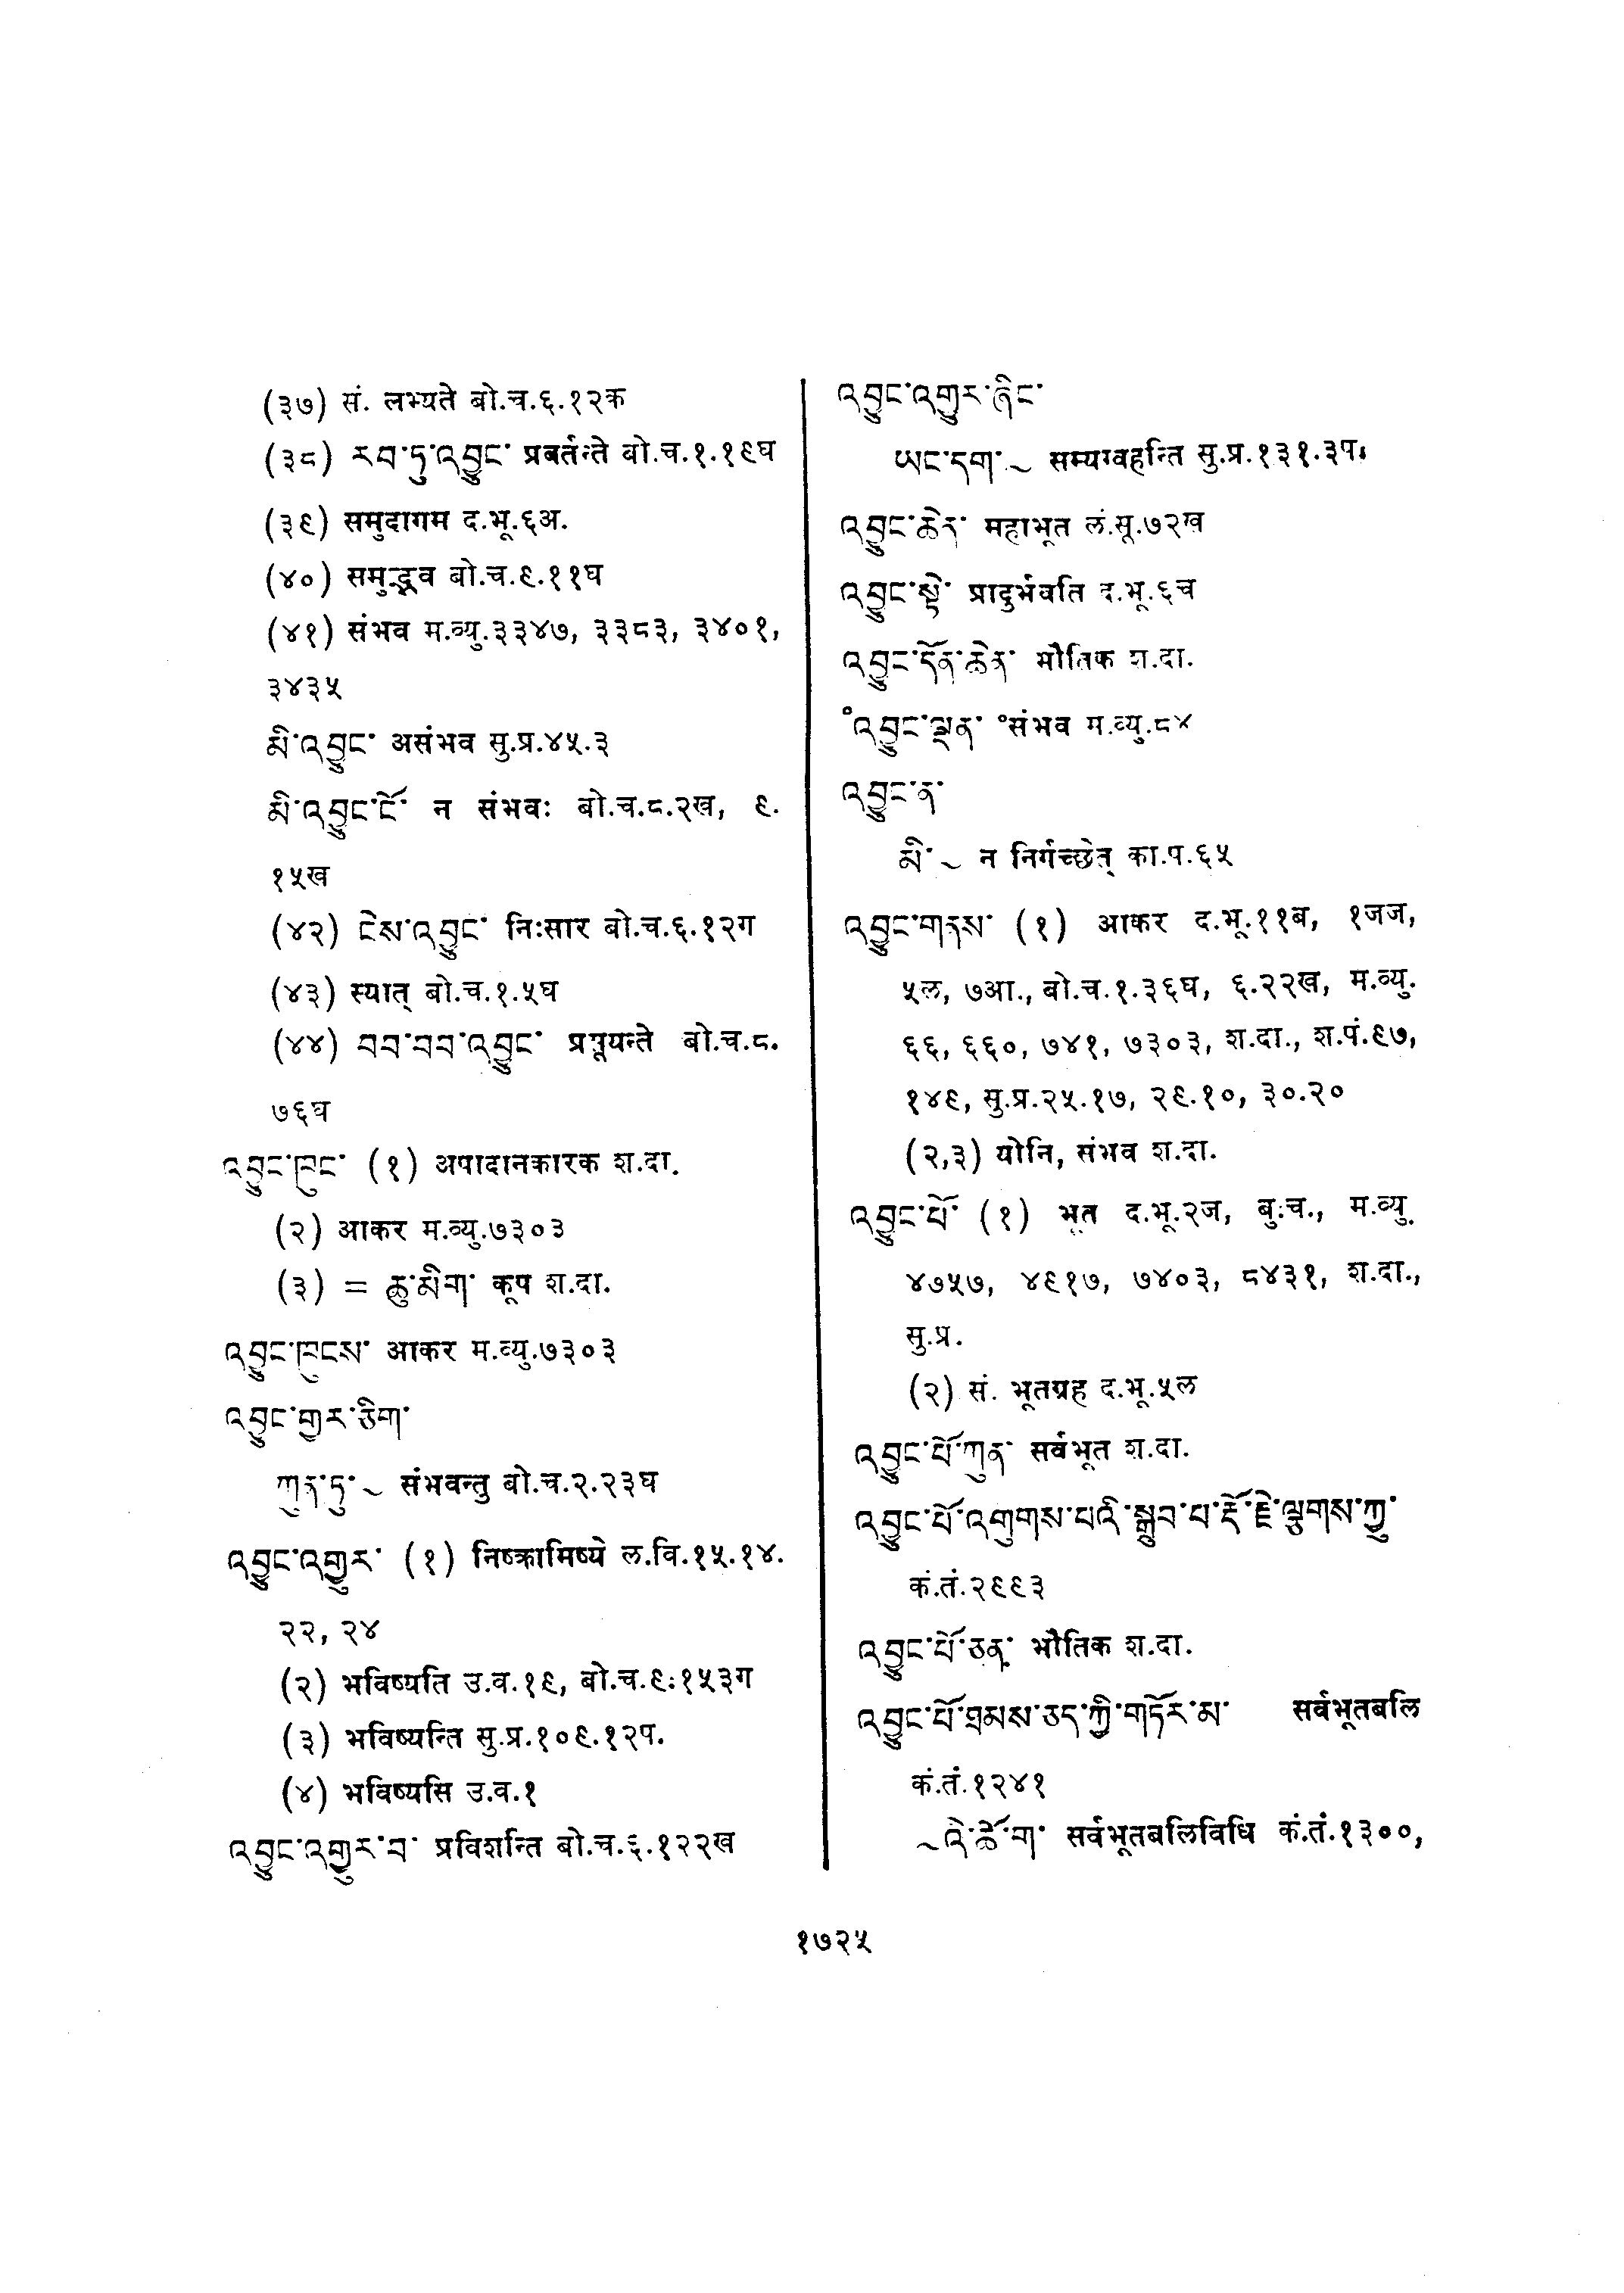 (३७) सं. लभ्यते बो.च.६.१२क
(३८) རབ་ཏུ་འབྱུང་ प्रवर्तन्ते बो.च.१.१९घ
(३९) समुदागम द.भू.६अ.
(४०) समुद्भव बो.च.९.११घ
(४१) संभव म.व्यु.३३४७, ३३८३, ३४०१,
३४३५
མི་འབྱུང་ असंभव सु.प्र.४५.३
མི་འབྱུང་ངོ་ न संभवः बो.च.८.२ख, ९.
१५ख
(४२) ངེས་འབྱུང་ निःसार बो.च.६.१२ग
(४३) स्यात् बो.च.१.५घ
(४४) བབ་བབ་འབྱུང་ प्रपूयन्ते बो.च.८.
७६घ
འབྱུང་ཁུང་ (१) अपादानकारक श.दा.
(२) आकर म.व्यु.७३०३
(३) = ཆུ་མིག་ कूप श.दा.
འབྱུང་ཁུངས་ आकर म.व्यु.७३०३
འབྱུང་གྱར་ཅིག་
ཀུན་ཏུ་ ~ संभवन्तु बो.च.२.२३घ
འབྱུང་འགྱུར་ (१) निष्क्रामिष्ये ल.वि.१५.१४.
२२, २४
(२) भविष्यति उ.व.१९, बो.च.९ः१५३ग
(३) भविष्यन्ति सु.प्र.१०९.१२प.
(४) भविष्यसि उ.व.१
འབྱུང་འགྱུར་བ་ प्रविशन्ति बो.च.६.१२२ख
འབྱུང་འགྱུར་ཞིང་
ཡང་དག་ ~ सम्यग्वहन्ति सु.प्र.१३१.३प.
འབྱུང་ཆེན་ महाभूत लं.सू.७२ख
འབྱུང་སྟེ་ प्रादुर्भवति द.भू.६च
འབྱུང་དོན་ཆེན་ भौतिक श.दा.
°འབྱུང་ལྡན་ °संभव म.व्यु.८४
འབྱུང་ན་
མི་ ~ न निर्गच्छेत् का.प.६५
འབྱུང་གནས་ (१) आकर द.भू.११ब, १जज,
५ल, ७आ., बो.च.१.३६घ, ६.२२ख, म.व्यु.
६६, ६६०, ७४१, ७३०३, श.दा., श.पं.९७,
१४९, सु.प्र.२५.१७, २९.१०, ३०.२०
(२,३) योनि, संभव श.दा.
འབྱུང་པོ་ (१) भूत द.भू.२ज, बुःच., म.व्यु.
४७५७, ४९१७, ७४०३, ८४३१, श.दा.,
सु.प्र.
(२) सं. भूतग्रह द.भू.५ल
འབྱུང་པོ་ཀུན་ सर्वभूत श.दा.
འབྱུང་པོ་འགུགས་པའི་སྒྲུབ་པ་རྡོ་རྗེ་ལྕགས་ཀྱུ་
कं.तं.२९९३
འབྱུང་པོ་ཅན་ भौतिक श.दा.
འབྱུང་པོ་ཐམས་ཅད་ཀྱི་གཏོར་མ་ सर्वभूतबलि
कं.तं.१२४१
~འི་ཆོ་ག་ सर्वभूतबलिविधि कं.तं.१३००,
१७२५